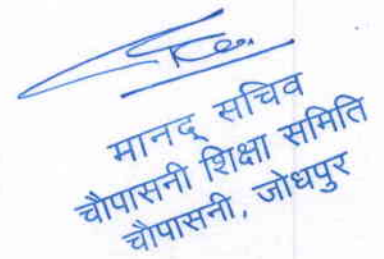 मानद् सचिव
चौपासनी शिक्षा समिति
चौपासनी, जोधपुर